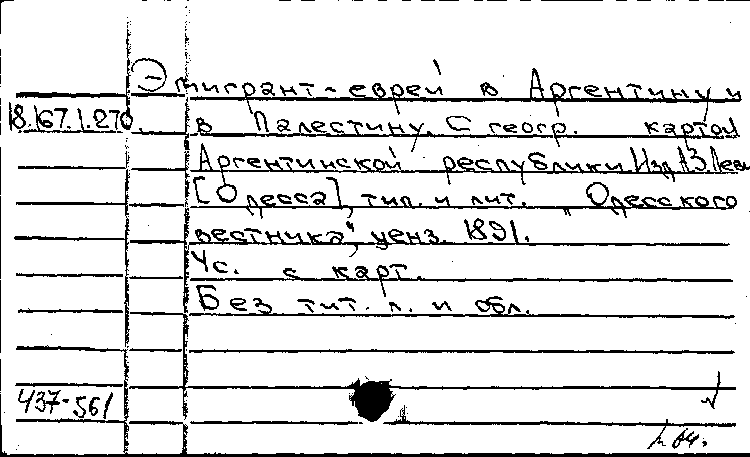 Эмигрант-еврей в Аргентину и
18.167.1.270. в Палестину. С геогр. картой
Аргентинской республики. Изд. А.З. Леви
[Одесса], тип. и лит. „Одесского
вестника", ценз. 1891.
4с. с карт.
Без тит. л. и обл.
437-561